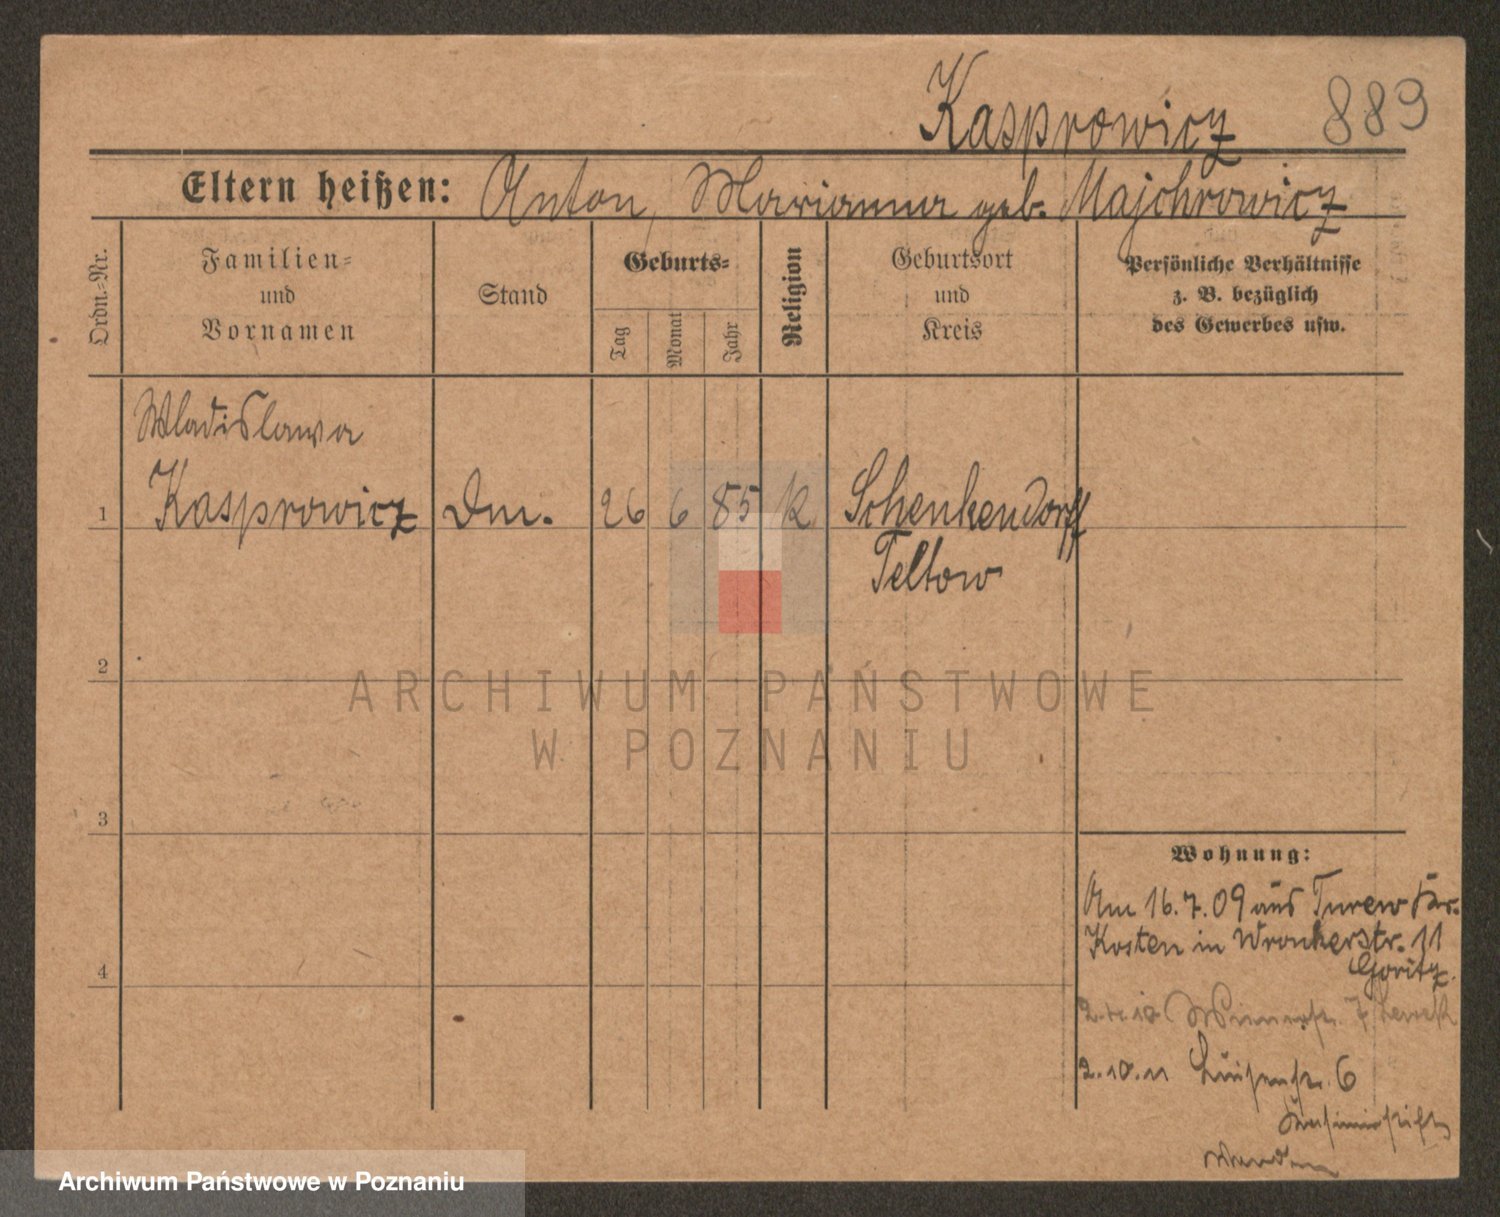 Kasprowicz 889
Eltern heißen: Anton, Marianna geb. Majchrowicz
Ordn.-Nr.
Familien-
und
Vornamen
Stand
Geburts-
Tag
Monat
Jahr
Religion
Geburtsort
und
Kreis
Persönliche Verhältnisse
z. B. bezüglich
des Gewerbes usw.
Wladislawa
1 Kasprowicz Dm. 26 6 85 k Schenkendorff
Teltow
2
3
4
Wohnung:
Am 16.7.09 aus Turew Kr.
Kosten in Wronkerstr. 11
Goritz.
2.10.11 Luisenstr. 6
ARCHIWUM PAŃSTWOWE
W POZNANIU
Archiwum Państwowe w Poznaniu